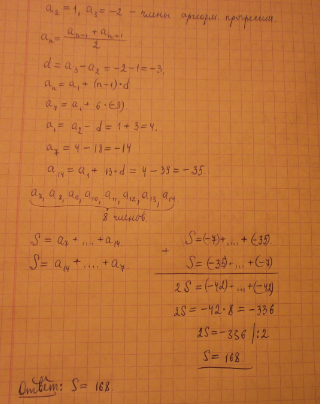 a₂ = 1, a₃ = -2 - члены арифм. прогрессии.
aₙ = (aₙ₋₁ + aₙ₊₁)/2
d = a₃ - a₂ = -2 - 1 = -3.
aₙ = a₁ + (n-1)·d
a₇ = a₁ + 6·(-3)
a₁ = a₂ - d = 1 + 3 = 4.
a₇ = 4 - 18 = -14
a₁₄ = a₁ + 13·d = 4 - 39 = -35
a₇, a₈, a₉, a₁₀, a₁₁, a₁₂, a₁₃, a₁₄
8 членов
S = a₇ + .... + a₁₄
S = a₁₄ + .... + a₇
+
S = (-7) + .... + (-35)
S = (-35) + ... + (-7)
2S = (-42) + ... + (-42)
2S = -42·8 = -336
2S = -336 |:2
S = 168
Ответ: S = 168.